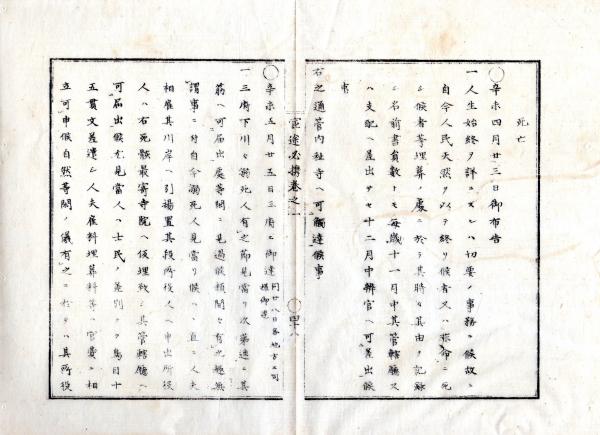 死亡
◯辛未四月廿三日御布告
一人生始終ヲ詳ニスルハ切要ノ事務ニ候故ニ
自今人民天然ヲ以テ終リ候者又ハ非命ニ死
シ候者等埋葬ノ處ニ於テ其時々其由ヲ記録
シ名前書員數トモ毎歳十一月中其管轄廳又
ハ支配ヘ差出サセ十二月中辨官ヘ可差出候
事
右之通管内社寺ヘ可觸達候事
官途必携巻之
四十八
◯辛未五月廿五日三府ニ御達
同廿八日各地方ニ同
様御達
一三府下川々溺死人有之節見當リ次第速ニ其
筋ヘ可届出處等閑ニ見過候類間々有之趣無
謂事ニ付自今溺死人見當リ候ハヽ直ニ人夫
相雇其川岸ヘ引揚置其段所役人ヘ申出所役
人ハ右死骸最寄寺院ヘ仮埋致シ其管轄廳ヘ
可届出候尤見當人ハ士民ノ差別ナク為目十
五貫文差遣シ人夫雇料埋葬料等ハ官費ニ相
立可申候自然等閑ノ儀有之ニ於テハ其所役